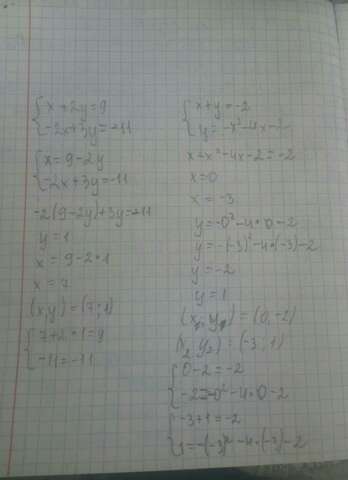 {x+2y=9
{-2x+3y=-11
{x=9-2y
{-2x+3y=-11
-2(9-2y)+3y=-11
y=1
x=9-2•1
x=7
(x,y)=(7;1)
{7+2•1=9
{-11=-11
{x+y=-2
{y=-x²-4x-2
x-x²-4x-2=-2
x=0
x=-3
y=-0²-4•0-2
y=-(-3)²-4•(-3)-2
y=-2
y=1
(x₁, y₁)=(0,-2)
(x₂ y₂)=(-3,1)
{0-2=-2
{-2=-0²-4•0-2
{-3+1=-2
{1=-(-3)²-4•(-3)-2